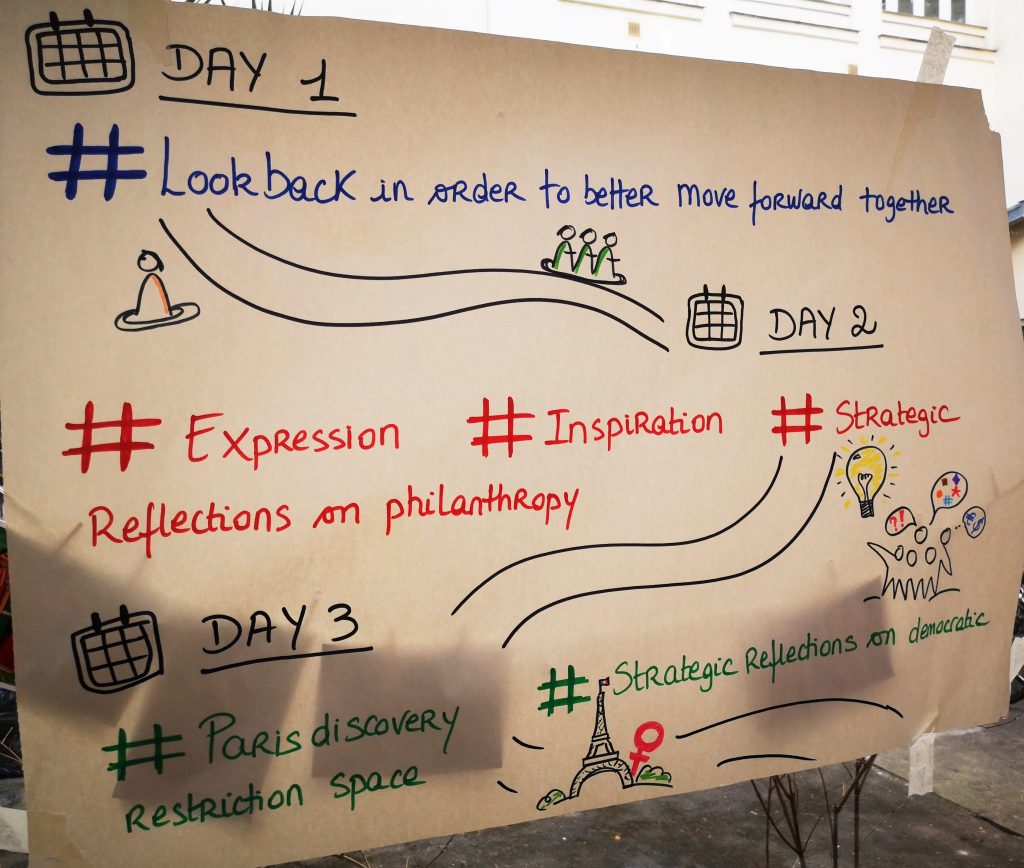 DAY 1
# Look back in order to better move forward together
DAY 2
# Expression # Inspiration # Strategic
Reflections on philanthropy
?!
DAY 3
# Strategic Reflections on democratic
# Paris discovery
restriction space